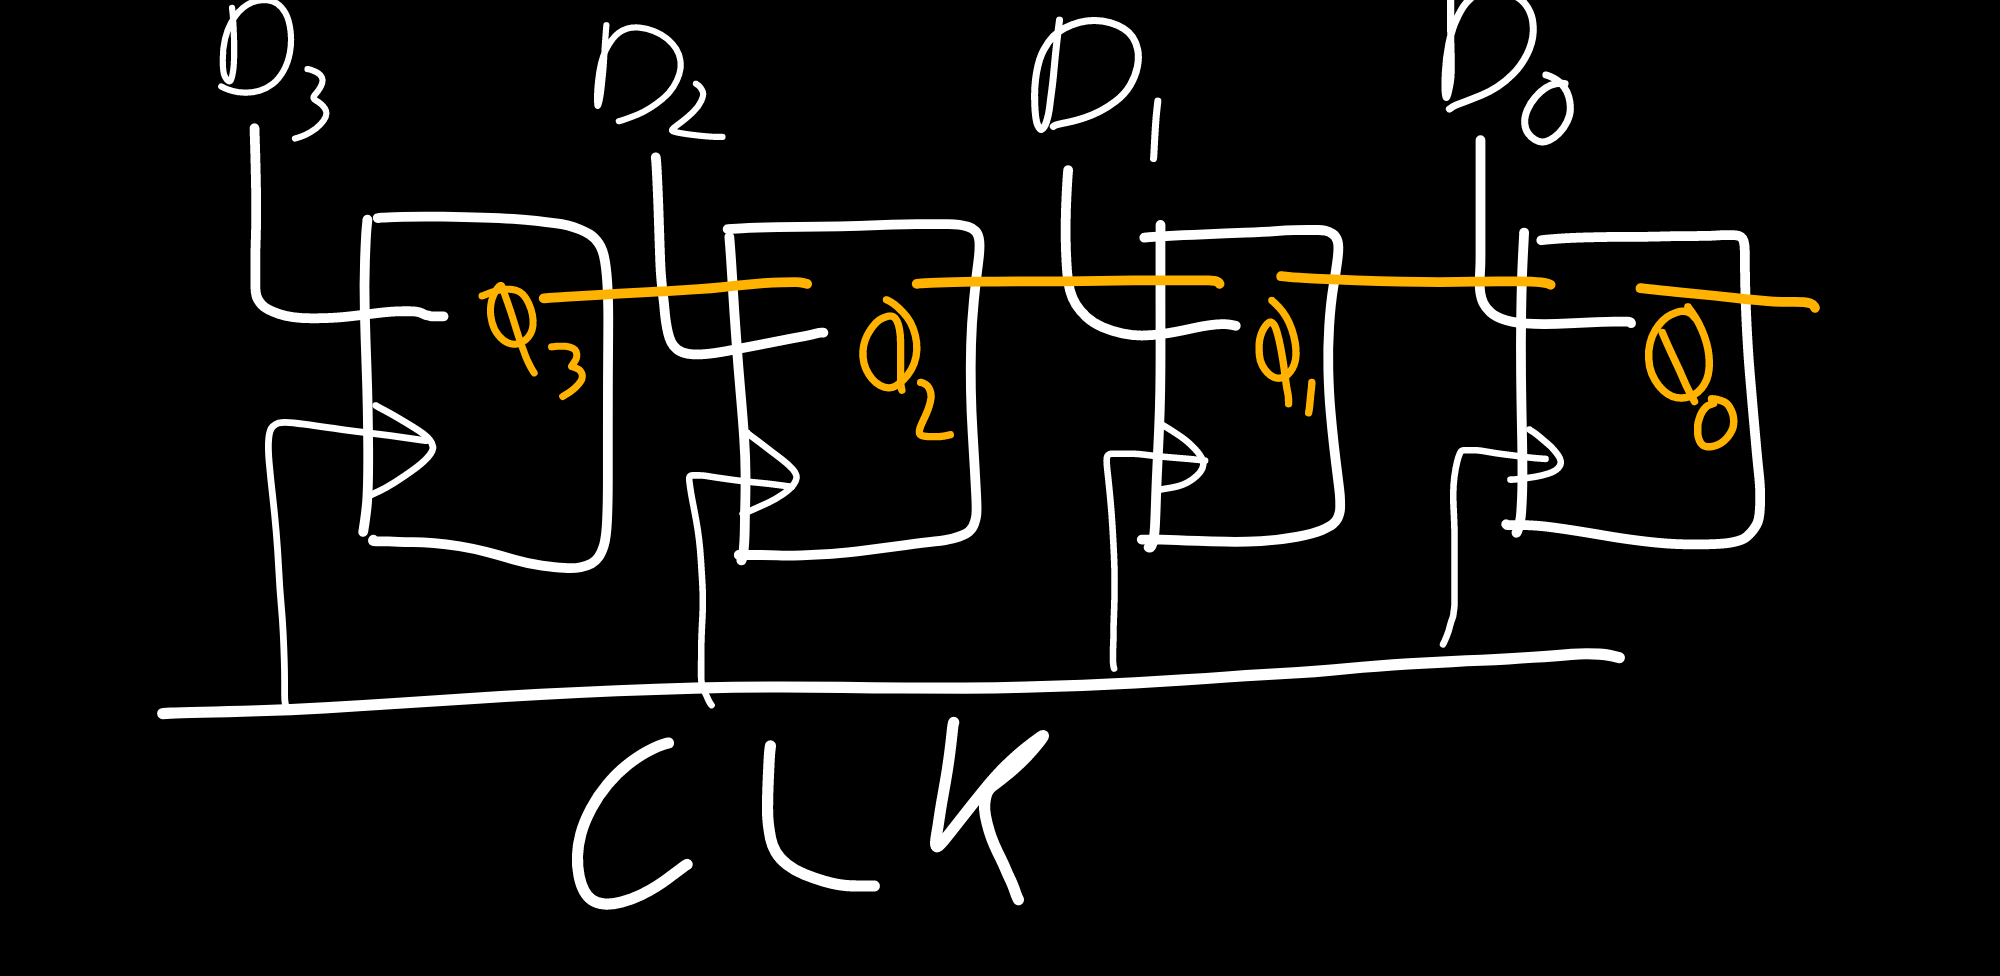 D3 D2 D1 D0
Q3 Q2 Q1 Q0
CLK